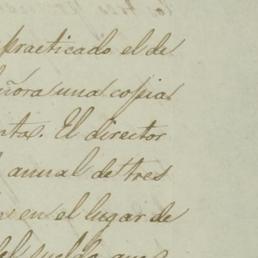 practicado el de
ñora una copia
nta. El director
anual de tres
en el lugar de
del sueldo que